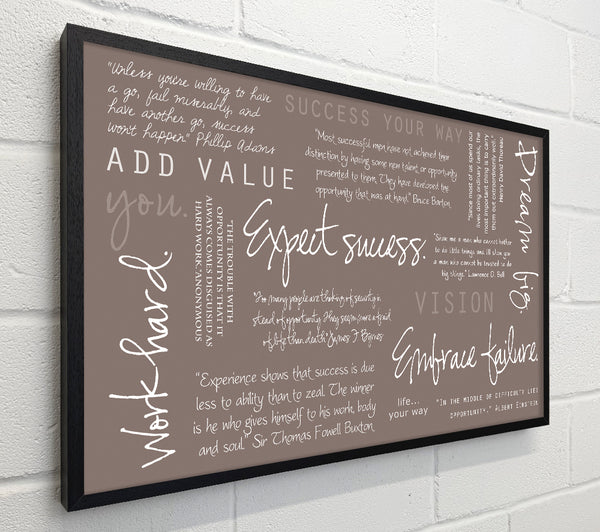 "Unless you're willing to have
a go, fail miserably, and
have another go, success
won't happen" Phillip Adams
SUCCESS YOUR WAY
"Most successful men have not achieved their
distinction by having some new talent or opportunity
presented to them. They have developed the
opportunity that was at hand." Bruce Barton
"Since most of us spend our
lives doing ordinary tasks, the
most important thing is to carry
them out extraordinarily well."
Henry David Thoreau
Dream big.
ADD VALUE
you.
"THE TROUBLE WITH
OPPORTUNITY IS THAT IT
ALWAYS COMES DISGUISED AS
HARD WORK."ANONYMOUS
Expect success.
"Show me a man who cannot bother
to do little things, and I'll show you
a man who cannot be trusted to do
big things." Lawrence D. Bell
Work hard.
"Too many people are thinking of security in
stead of opportunity. They seem more afraid
of life than death" James F. Byrnes
VISION
Embrace failure.
"Experience shows that success is due
less to ability than to zeal. The winner
is he who gives himself to his work, body
and soul." Sir Thomas Fowell Buxton
life...
your way
"IN THE MIDDLE OF DIFFICULTY LIES
OPPORTUNITY." ALBERT EINSTEIN